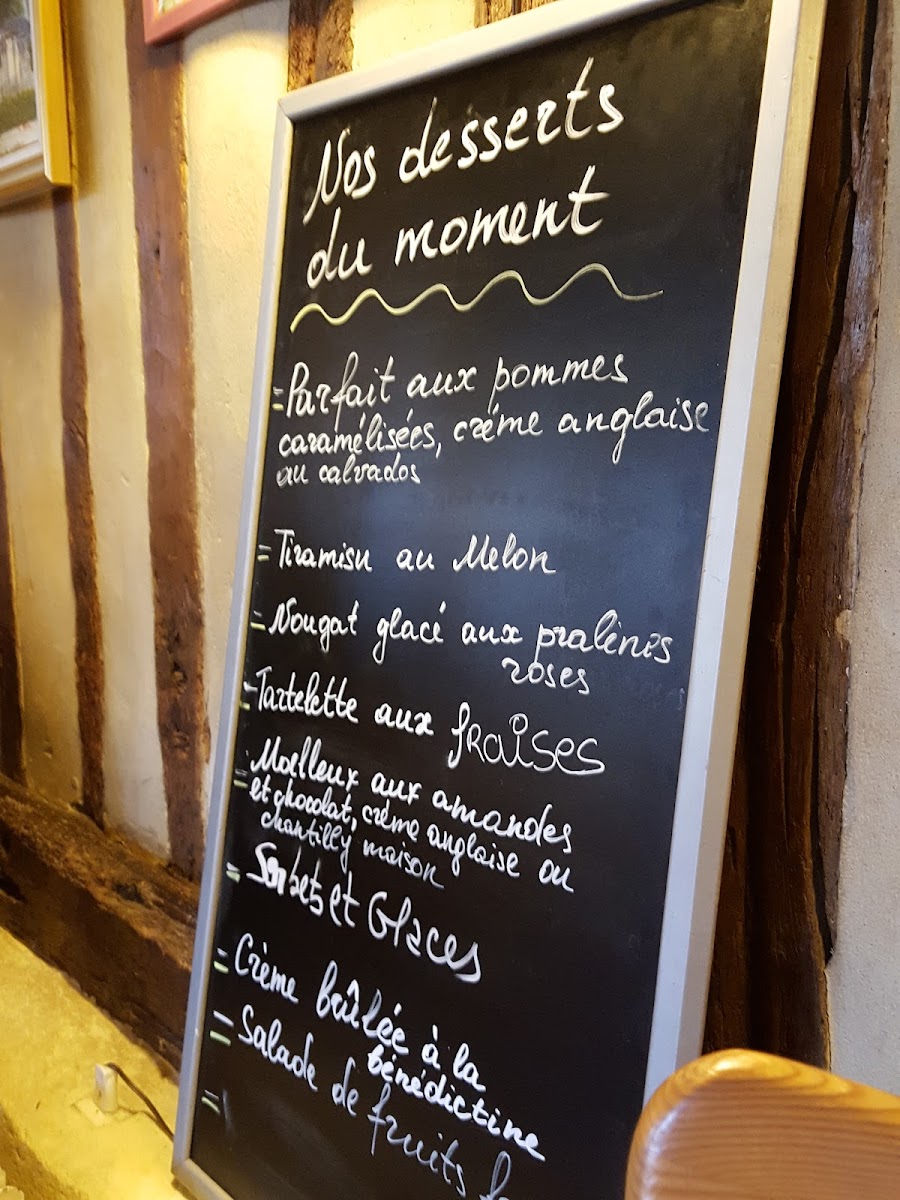 Nos desserts
du moment
= Parfait aux pommes
caramélisées, crème anglaise
au calvados
= Tiramisu au Melon
= Nougat glacé aux pralines
roses
= Tartelette aux fraises
= Moelleux aux amandes
et chocolat, crème anglaise ou
chantilly maison
= Sorbets et Glaces
= Crème brûlée à la
bénédictine
= Salade de fruits